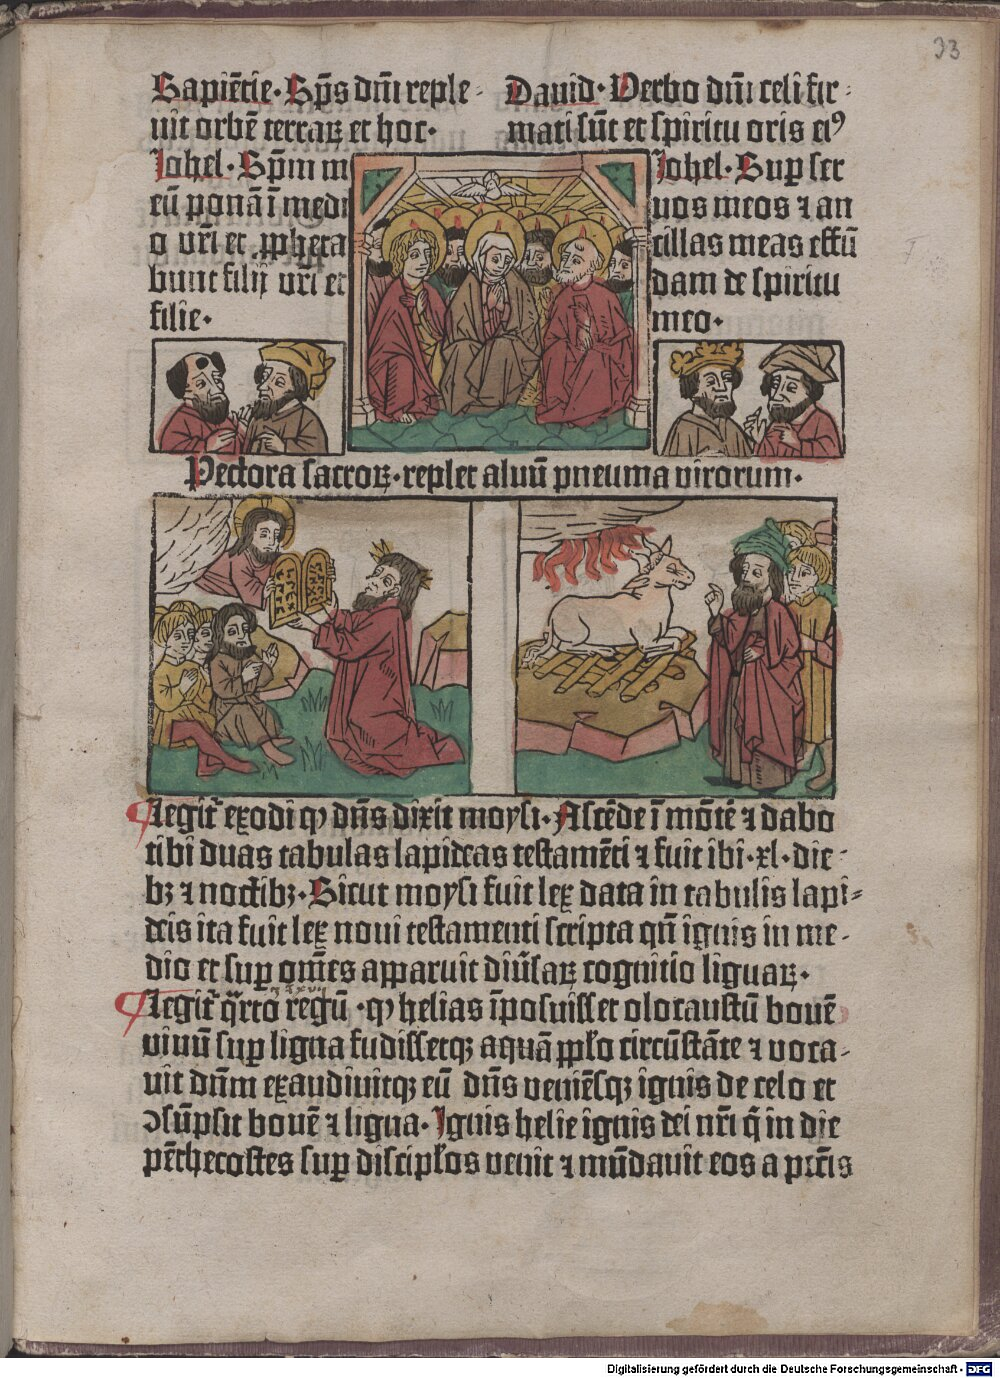 33
Sapiē̄tie · Sp̄s dn̄i reple⸗
uit orbē terraꝝ et hoc ·
Johel · Sp̄m m
eū ponā ī medi
o vr̄i et ꝓpheta
bunt filij vr̄i et
filie ·
Dauid · Verbo dn̄i celi fir⸗
mati sūt et spiritu oris eiꝰ
Johel · Suꝑ ser
uos meos ⁊ an
cillas meas effū
dam de spiritu
meo ·
Pectora sacroꝝ · replet aluū pneuma virorum ·
Legit᷑ exodi ꝙ dn̄s dixit moysi · Ascēde ī mōtē ⁊ dabo
tibi duas tabulas lapideas testamēti ⁊ fuit ibi · xl · die⸗
bꝫ ⁊ noctibꝫ · Sicut moysi fuit lex data in tabulis lapi⸗
deis ita fuit lex noui testamenti scripta qn̄ ignis in me⸗
dio et suꝑ om̄es apparuit diūsaꝝ cognitio liguaꝝ ·
Legit᷑ q̄rto regū · ꝙ helias īposuisset olocaustū bouē
viuū suꝑ ligna fudissetqꝫ aquā ppło circūstāte ⁊ voca⸗
uit dn̄m exaudiuitqꝫ eū dn̄s veniēsqꝫ ignis de celo et
ↄsūpsit bouē ⁊ ligna · Ignis helie ignis dei nr̄i q̄ in die
pēthecostes suꝑ discipłos venit ⁊ mūdauit eos a pctīs
Digitalisierung gefördert durch die Deutsche Forschungsgemeinschaft - DFG